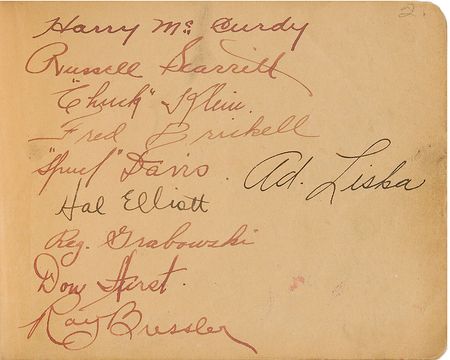 2.
Harry McCurdy
Russell Scarritt
"Chuck" Klein.
Fred Brickell
"Spud" Davis.
Ad. Liska
Hal Elliott
Reg. Grabowski
Don Hurst.
Ray Bressler